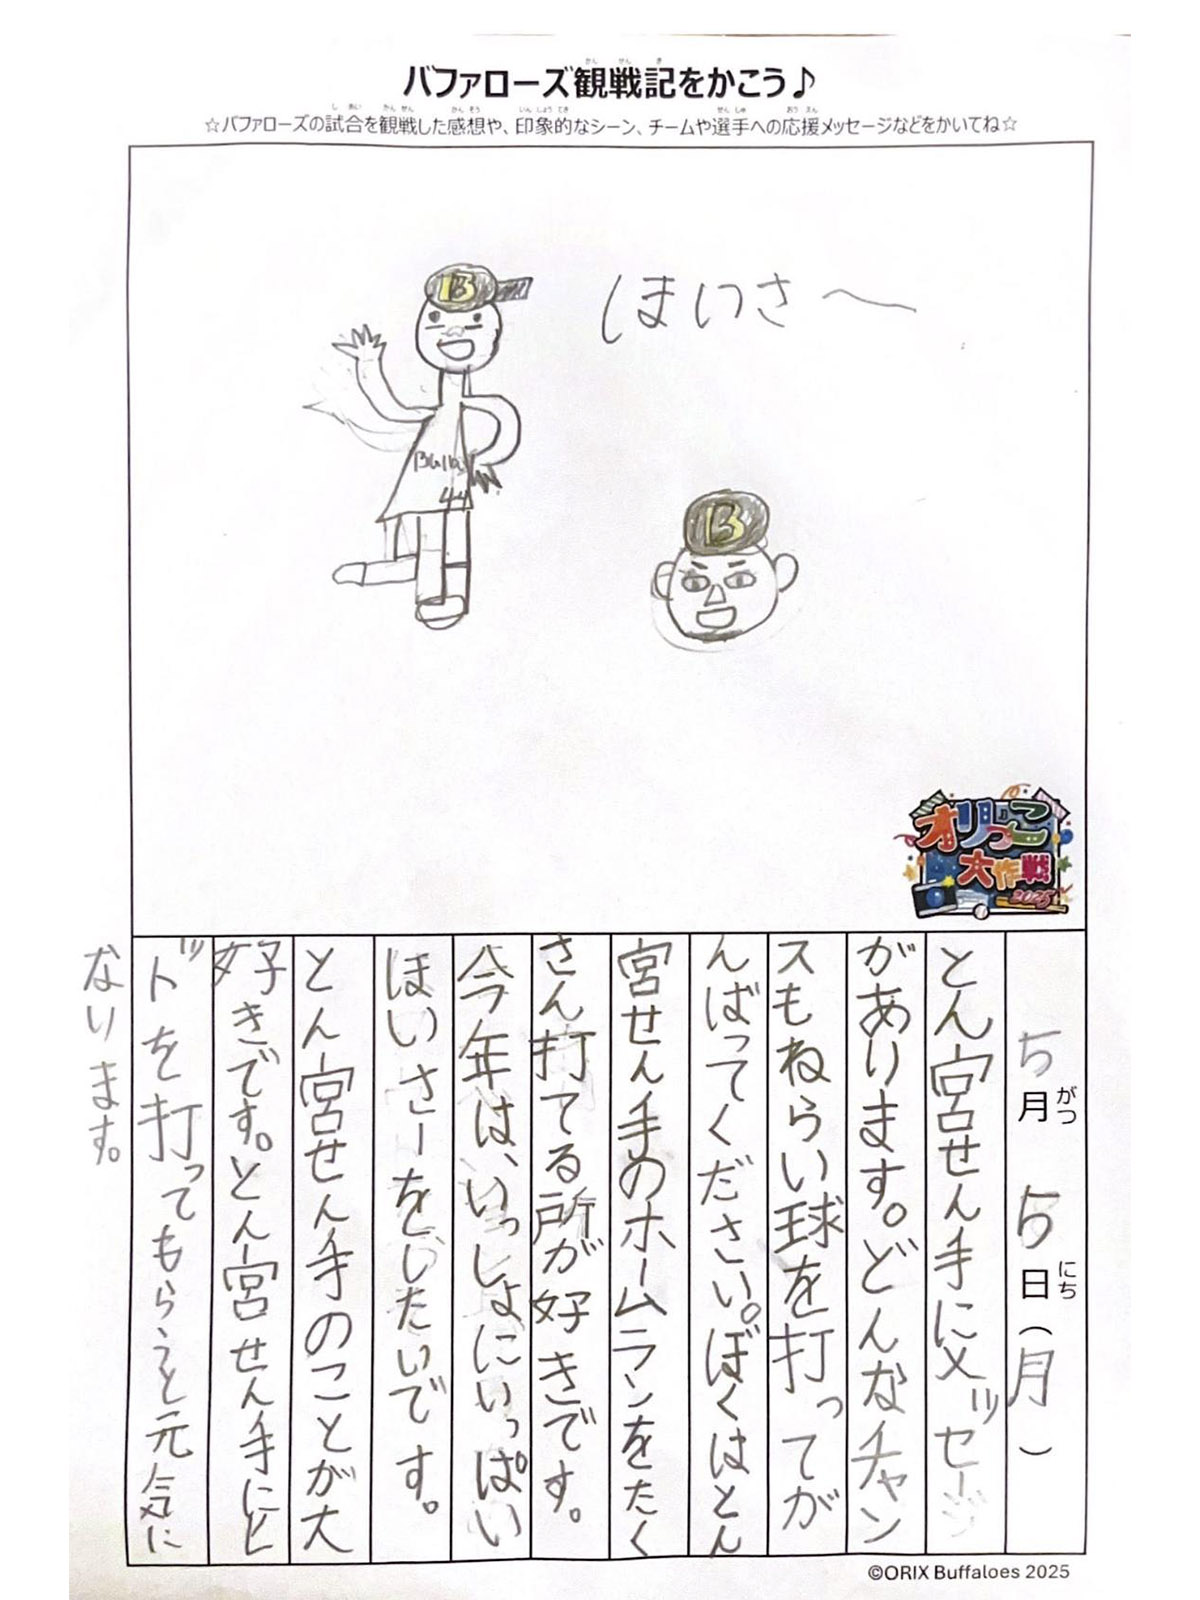 バファローズ観戦記をかこう♪
☆バファローズの試合を観戦した感想や、印象的なシーン、チームや選手への応援メッセージなどをかいてね☆
ほいさ〜
B
Buffa
44
B
オリっこ
大作戦
2025
5月5日(月)
とん宮せん手にメッセージ
があります。どんなチャン
スもねらい球を打ってが
んばってください。ぼくはとん
宮せん手のホームランをたく
さん打てる所が好きです。
今年は、いっしょにいっぱい
ほいさーをしたいです。
とん宮せん手のことが大
好きです。とん宮せん手にヒ
ットを打ってもらうと元気に
なります。
©ORIX Buffaloes 2025